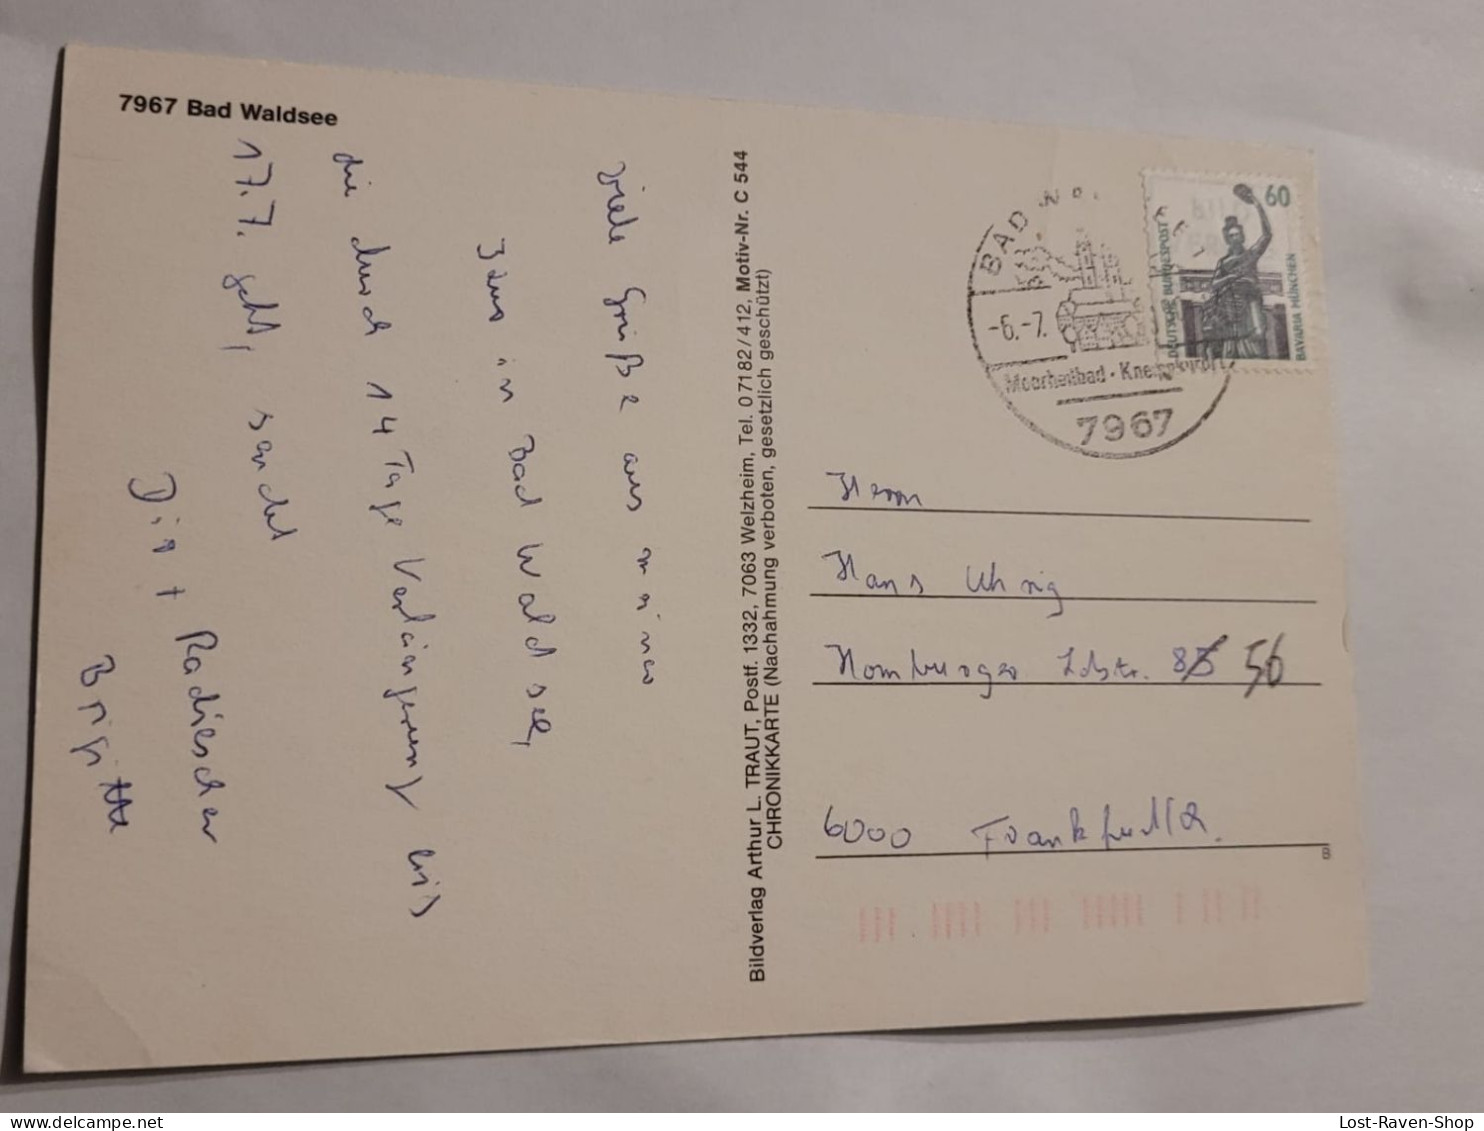 7967 Bad Waldsee
Viele Grüße aus meiner
3zws in Bad Waldsee,
die durch 14 Tage Verlängerung bis
17.7. geht, sendet
Dir +
Brigitte
Bildverlag Arthur L. TRAUT, Postf. 1332, 7063 Welzheim, Tel. 07182/412, Motiv-Nr. C 544
CHRONIKKARTE (Nachahmung verboten, gesetzlich geschützt)
60
DEUTSCHE BUNDESPOST
BAVARIA MÜNCHEN
BAD
-6.-7.
Moorheilbad · Kneippkurort
7967
Herrn
Hans Uhrig
Homburger Ldstr. 85 56
6000 Frankfurt/
B
Lost-Raven-Shop